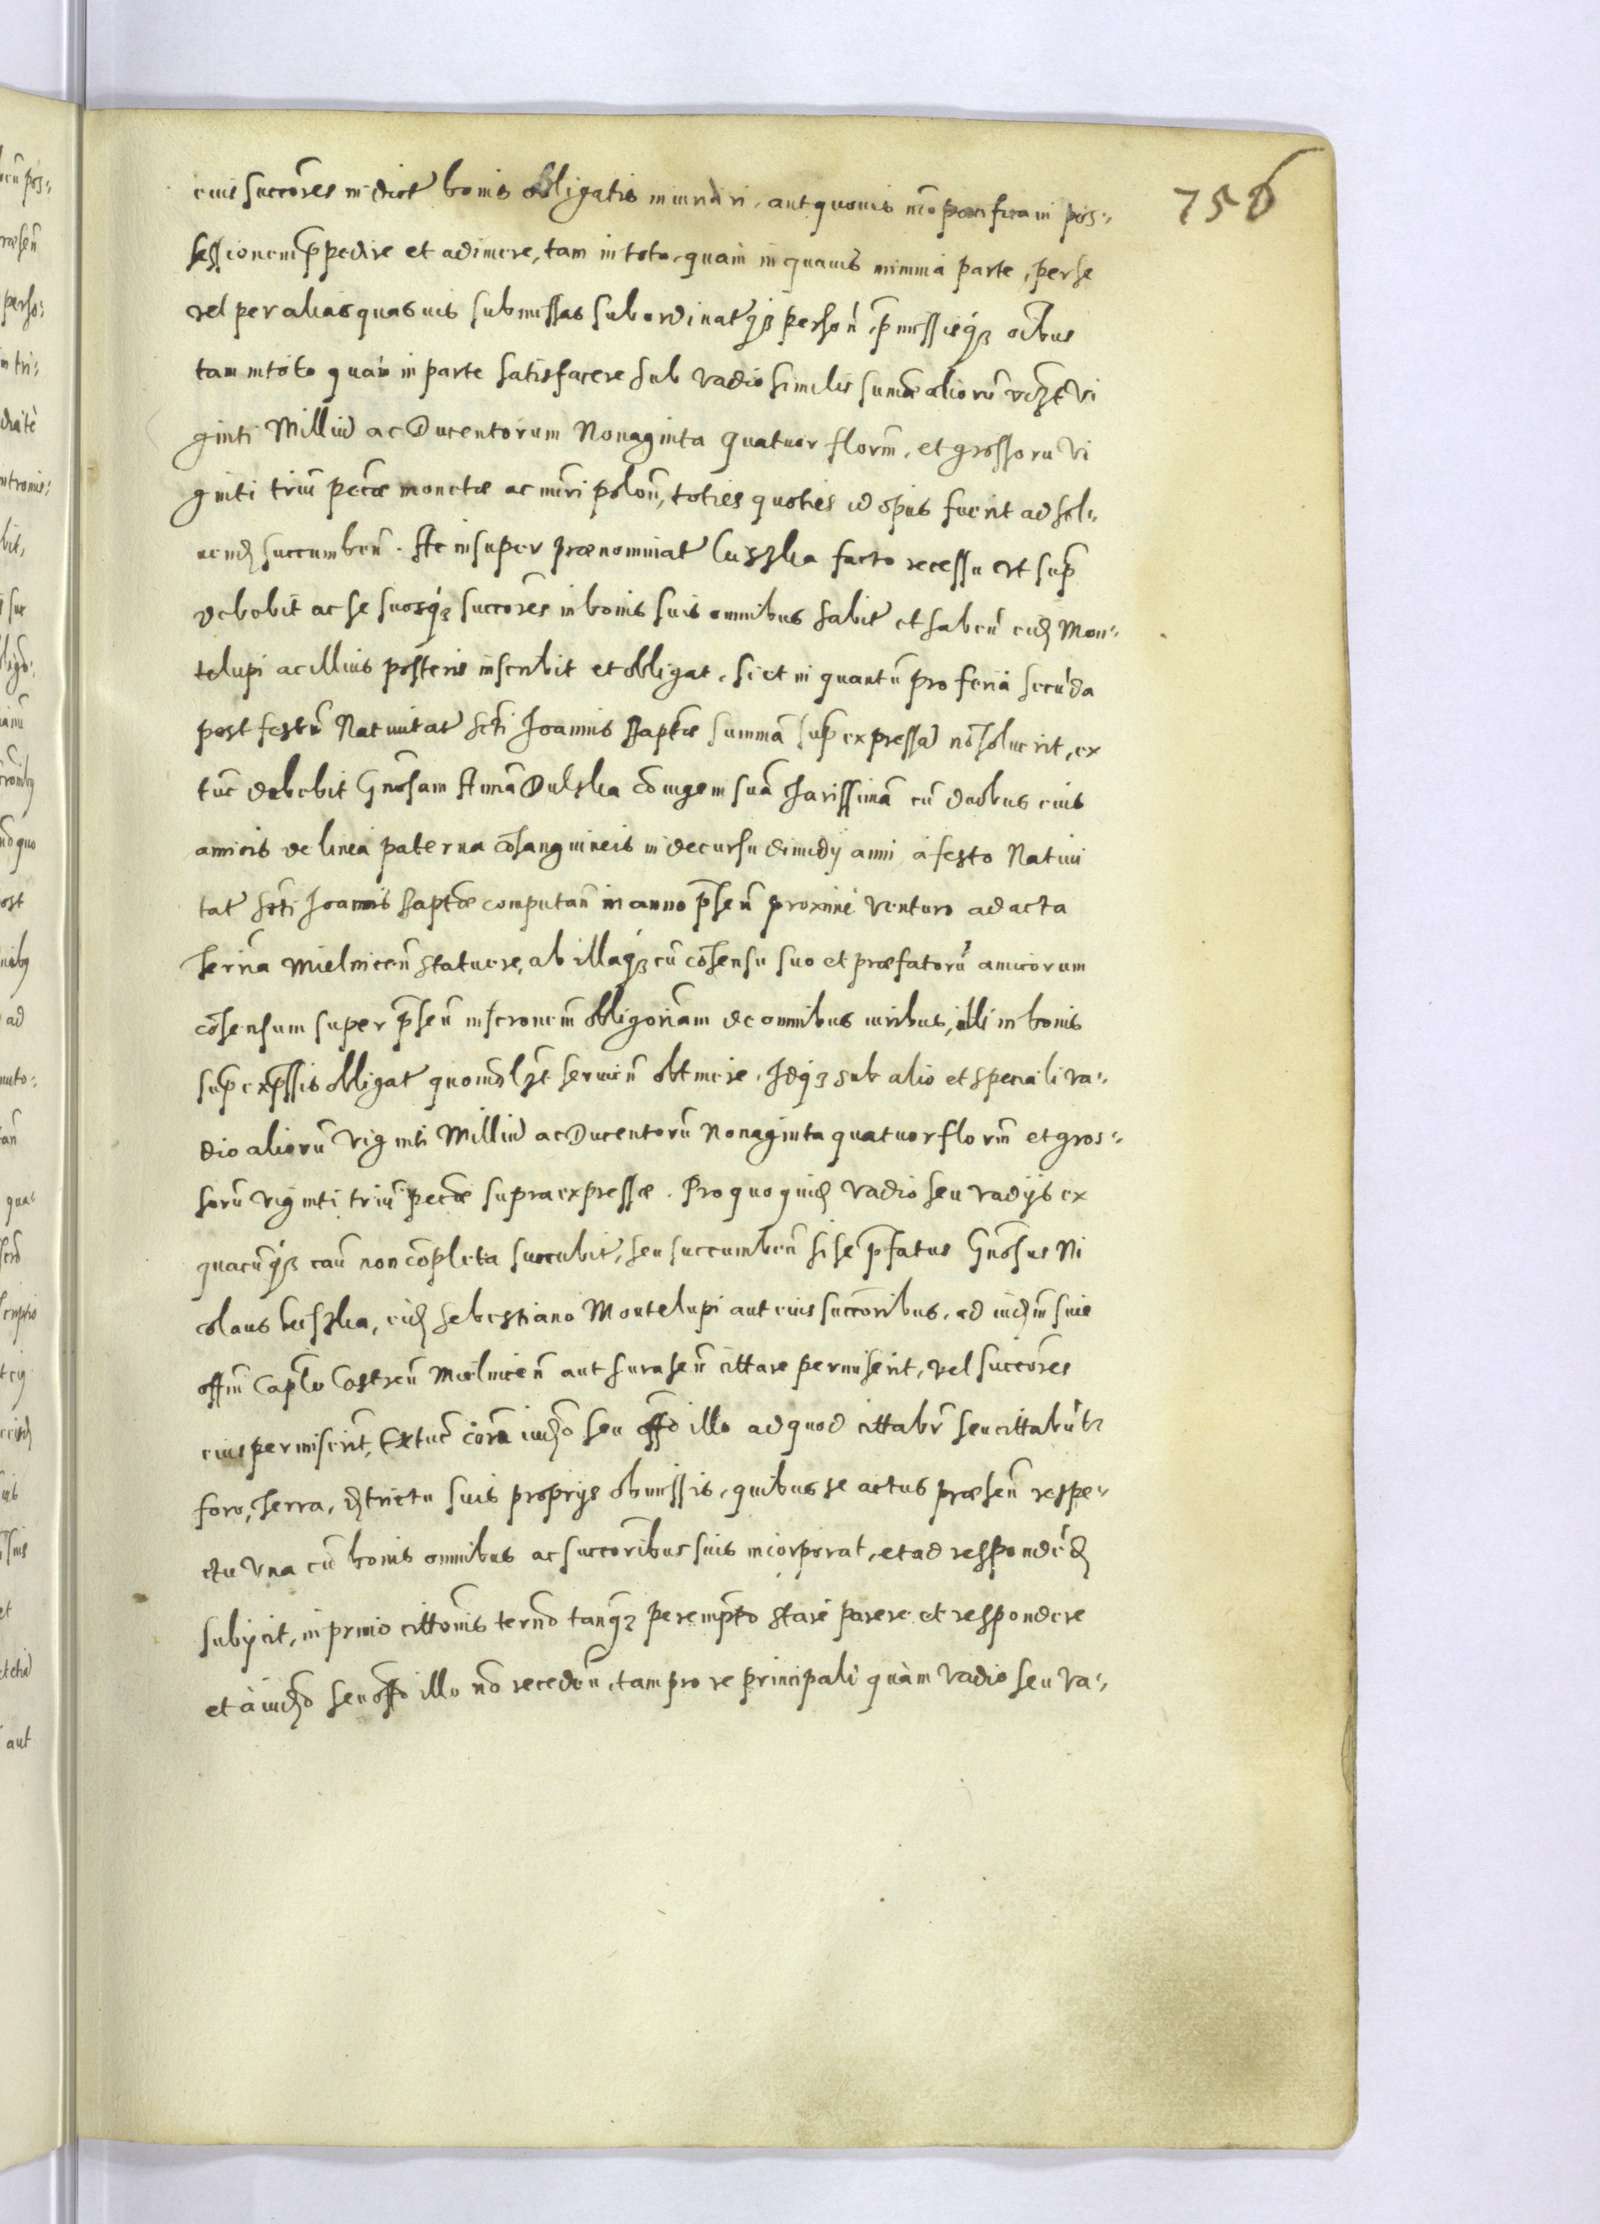 756
eius succõres in dict bonis obligatis iniuriari, aut quouis mõ pacificam pos-
sessionem p̃pedire et adimere, tam in toto, quàm in quauis minima parte, per se
vel per alias quasuis submissas subordinatqз person̄, p̃missisqз oĩbus
tam in toto quàm in parte satisfacere sub vadio similis sum̃æ aliorũ vi
ginti Milliũ ac Ducentorum Nonaginta quatuor florin̄, et grossorũ vi
ginti triũ pec̃æ monetæ ac nũri polon̄, toties quoties id opus fuerit ad sol-
uend succumben̄. Ac insuper prænominat Luszka facto recessu vt sup̃
debebit ac se suosqз succõres in bonis suis omnibus habit et haben̄ eid Mon-
telupi ac illius posteris inscribit et obligat, si et in quantũ pro feria secũda
post festũ Natiuitat Scti Joannis Baptæ summã sup̃expressã nõ soluerit, ex
tũc debebit Gnosam Annã Dulska cõiugem suã charissimã cũ duobus eius
amicis de linea paterna cõsanguineis in decursu dimidij anni à festo Natiui
tat Scti Joannis Baptæ computan̄ in anno p̃sen̄ proximè venturo ad acta
Terr̃ia Mielnicen̄ statuere, ab illaqз cũ cõsensu suo et præfatorũ amicorum
cõsensum super p̃sen̄ inscr̃onem obligor̃iam de omnibus iuribus, illi in bonis
sup̃exp̃ssis obligat seruien̄ obtinere. Idqз sub alio et speciali va-
dio aliorũ viginti Milliũ ac Ducentorũ Nonaginta quatuor florin̄ et gros-
sorũ viginti triũ pec̃æ supraexpressæ. Pro quo quid vadio seu vadijs ex
quacũqз cau non cõpleta succubit, seu succumben̄ si se p̃fatus Gnosus Ni
colaus Luszka, eid Sebestiano Montelupi aut eius succõribus, ad iudm siue
offm̃ Capl̃e Castren̄ Mielnicen̄ aut Surasen̄ cittare permiserit, vel succõres
eius permiserit, Extũc corã iudo seu offo illo ad quod cittabr̃ seu cittabũtr
foro, terra, dstrictu suis proprijs obmissis, quibus se actus præsen̄ respe-
ctu vna cũ bonis omnibus ac succõribus suis incorporat, et ad respondẽd
subijcit, in primo cittõnis termõ tanqз perempto stare parere et respondere
et à iudo seu offo illo nõ receden̄, tam pro re principali quàm vadio seu va-